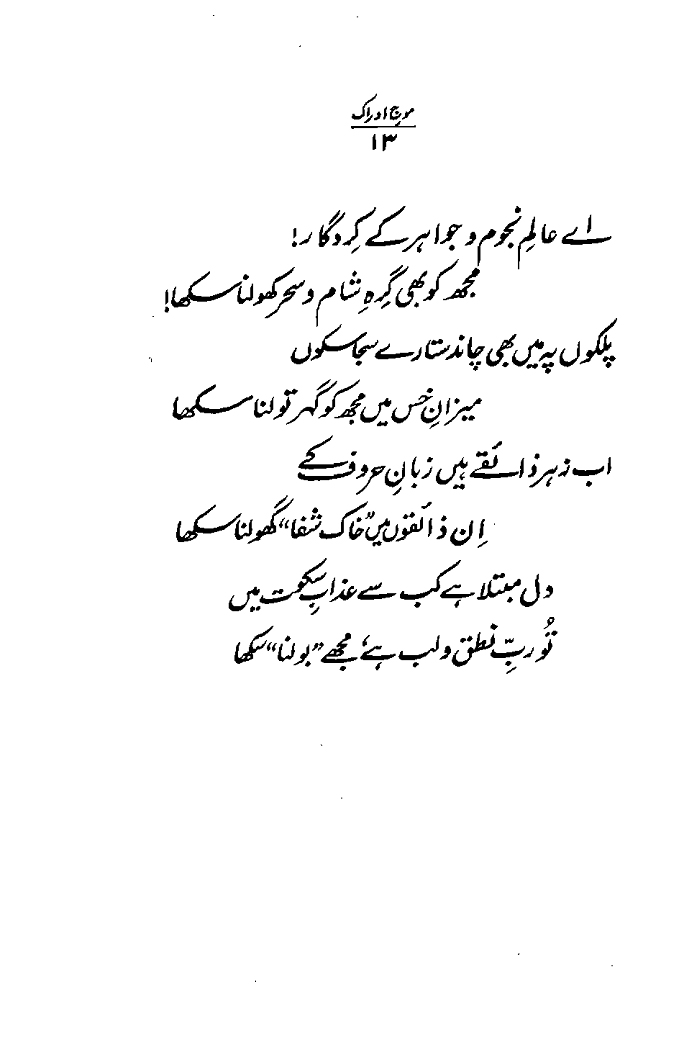 موجِ ادراک
۱۳
اے عالمِ نجوم و جواہر کے کِردگار!
مجھ کو بھی گرہِ شام و سحر کھولنا سکھا!
پلکوں پہ میں بھی چاند ستارے سجا سکوں
میزانِ خس میں مجھ کو گہر تولنا سکھا
اب زہر ذائقے ہیں زبانِ حروف کے
اِن ذائقوں میں ”خاک شفا“ گھولنا سکھا
دل مبتلا ہے کب سے عذابِ سکوت میں
تُو ربِّ نطق و لب ہے، مجھے ”بولنا“ سکھا